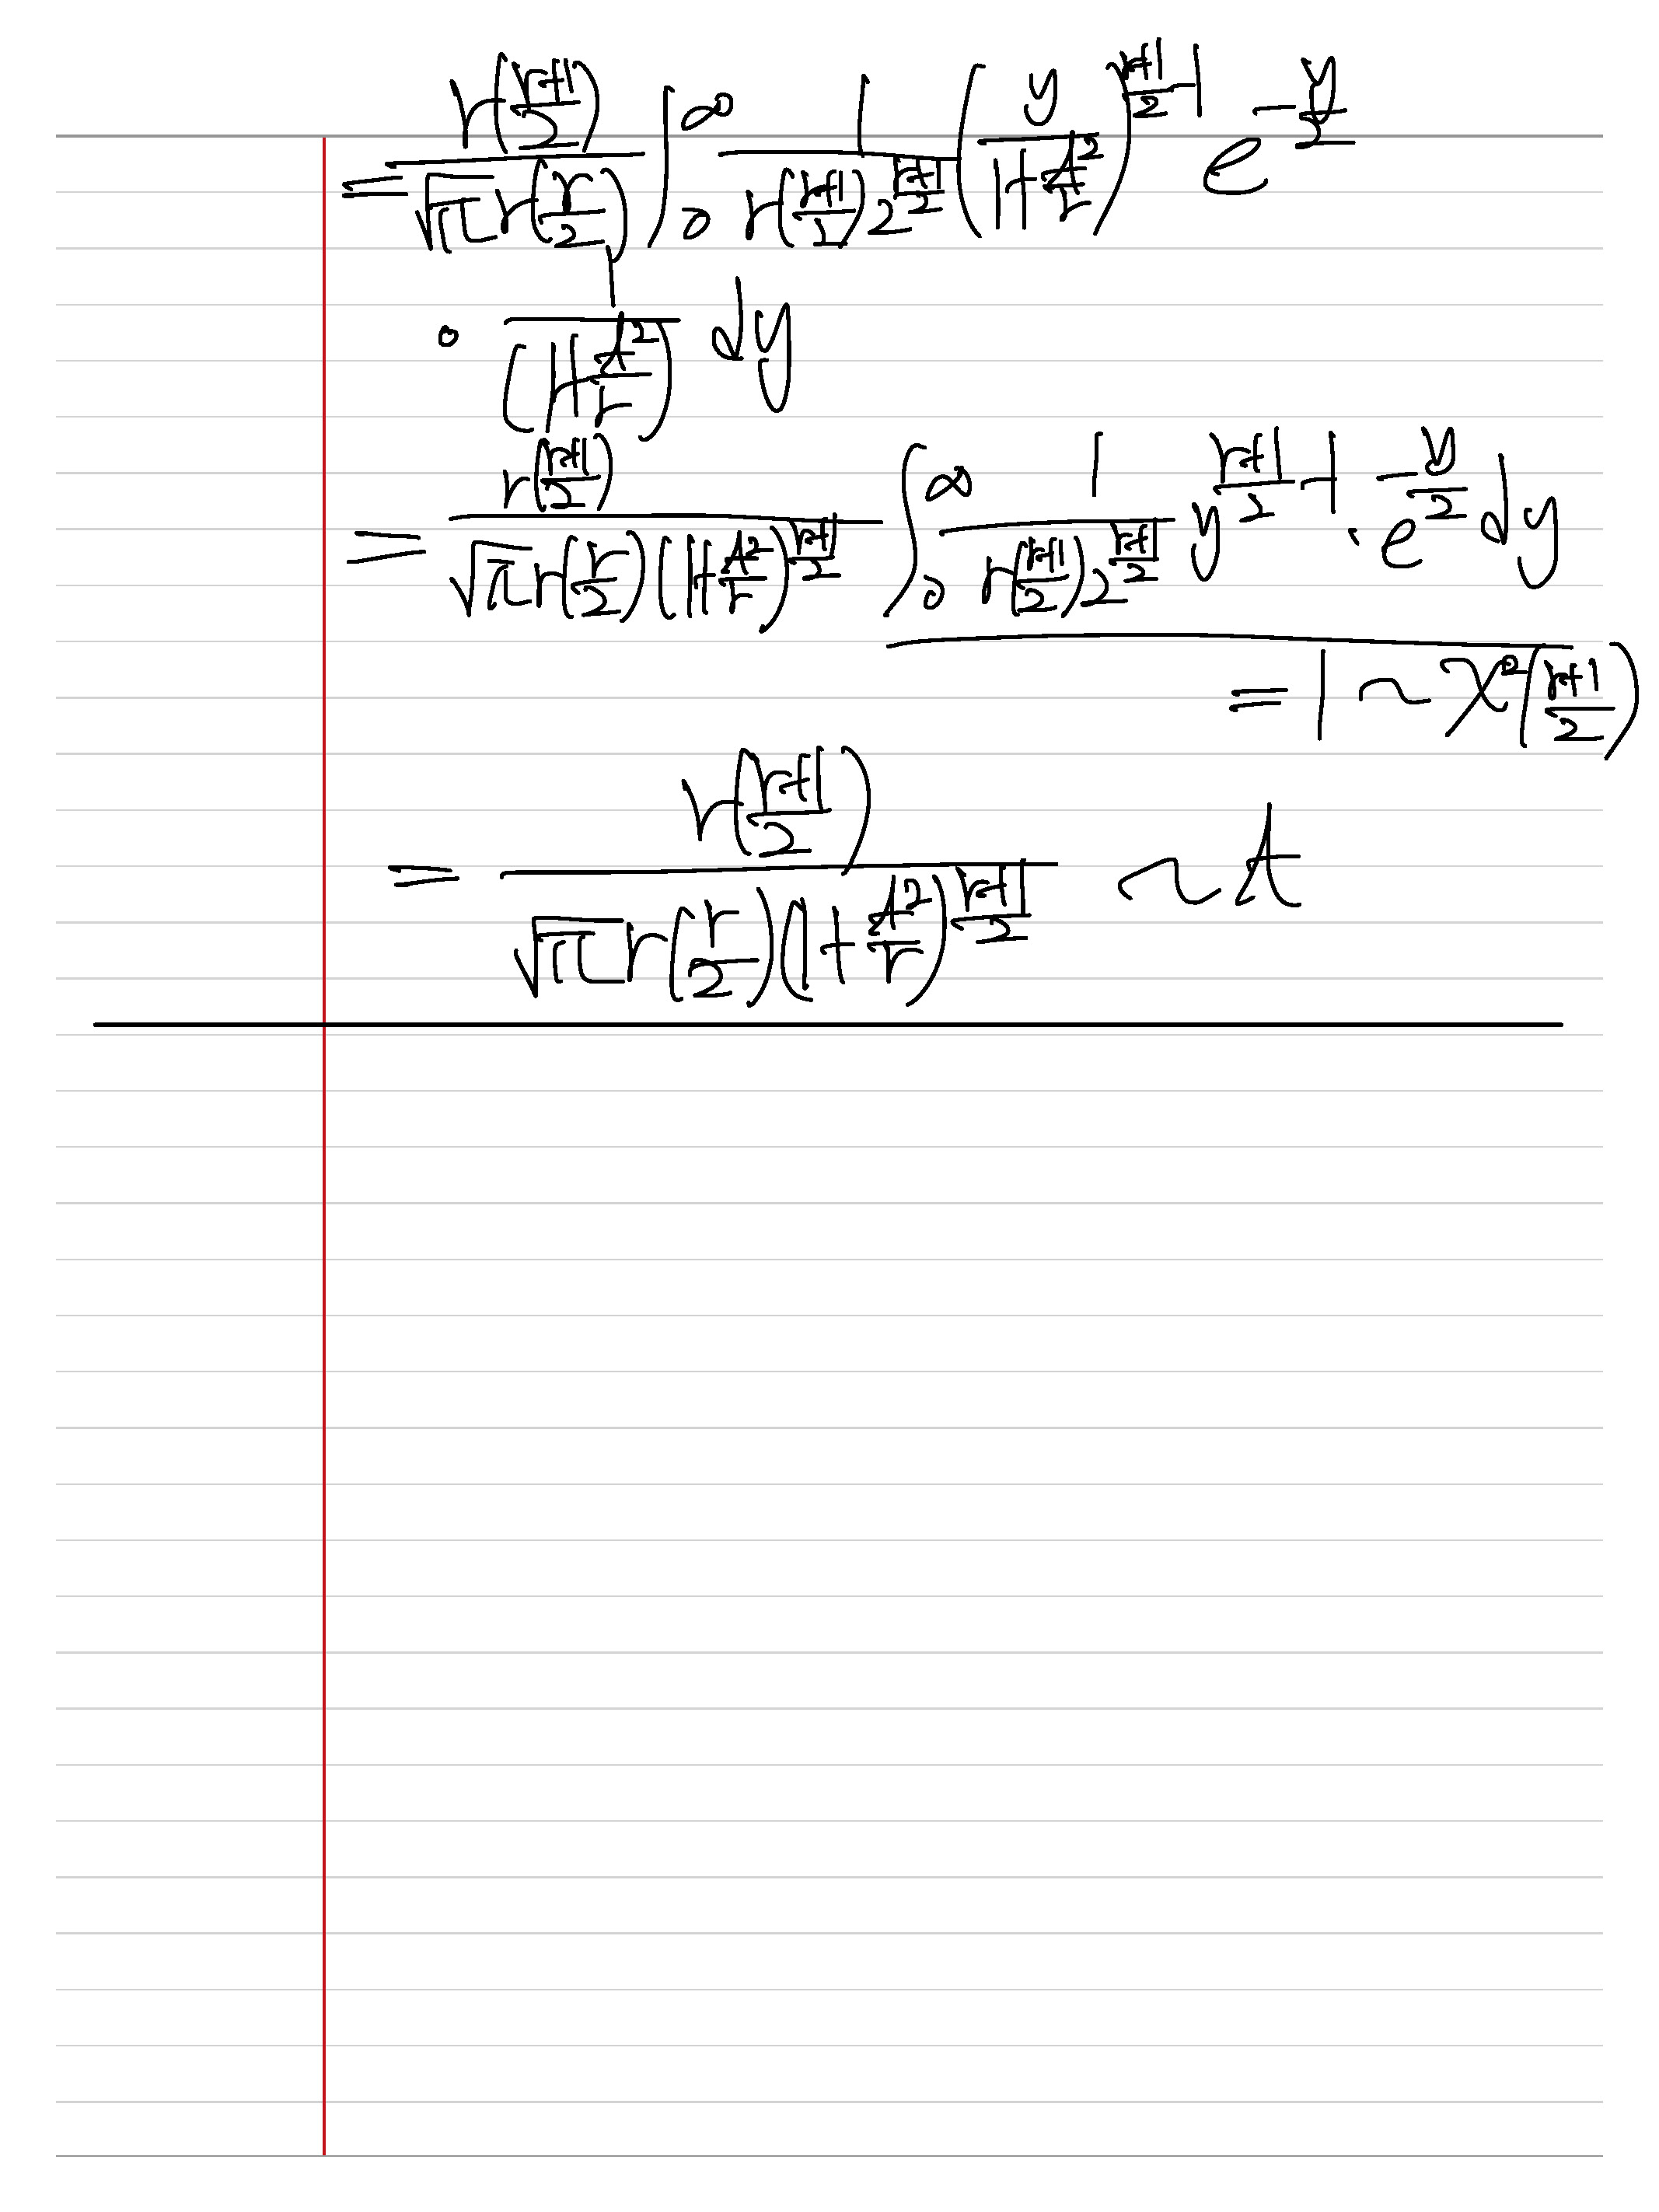 = \frac{\Gamma(\frac{r+1}{2})}{\sqrt{\pi}\Gamma(\frac{r}{2})} \int_0^\infty \frac{1}{\Gamma(\frac{r+1}{2}) 2^{\frac{r+1}{2}}} \left(\frac{y}{1+\frac{t^2}{r}}\right)^{\frac{r+1}{2}-1} e^{-\frac{y}{2}}
\cdot \frac{1}{(1+\frac{t^2}{r})} dy
= \frac{\Gamma(\frac{r+1}{2})}{\sqrt{\pi}\Gamma(\frac{r}{2})(1+\frac{t^2}{r})^{\frac{r+1}{2}}} \int_0^\infty \frac{1}{\Gamma(\frac{r+1}{2}) 2^{\frac{r+1}{2}}} y^{\frac{r+1}{2}-1} \cdot e^{-\frac{y}{2}} dy
= 1 \sim \chi^2(\frac{r+1}{2})
= \frac{\Gamma(\frac{r+1}{2})}{\sqrt{\pi}\Gamma(\frac{r}{2})(1+\frac{t^2}{r})^{\frac{r+1}{2}}} \sim t